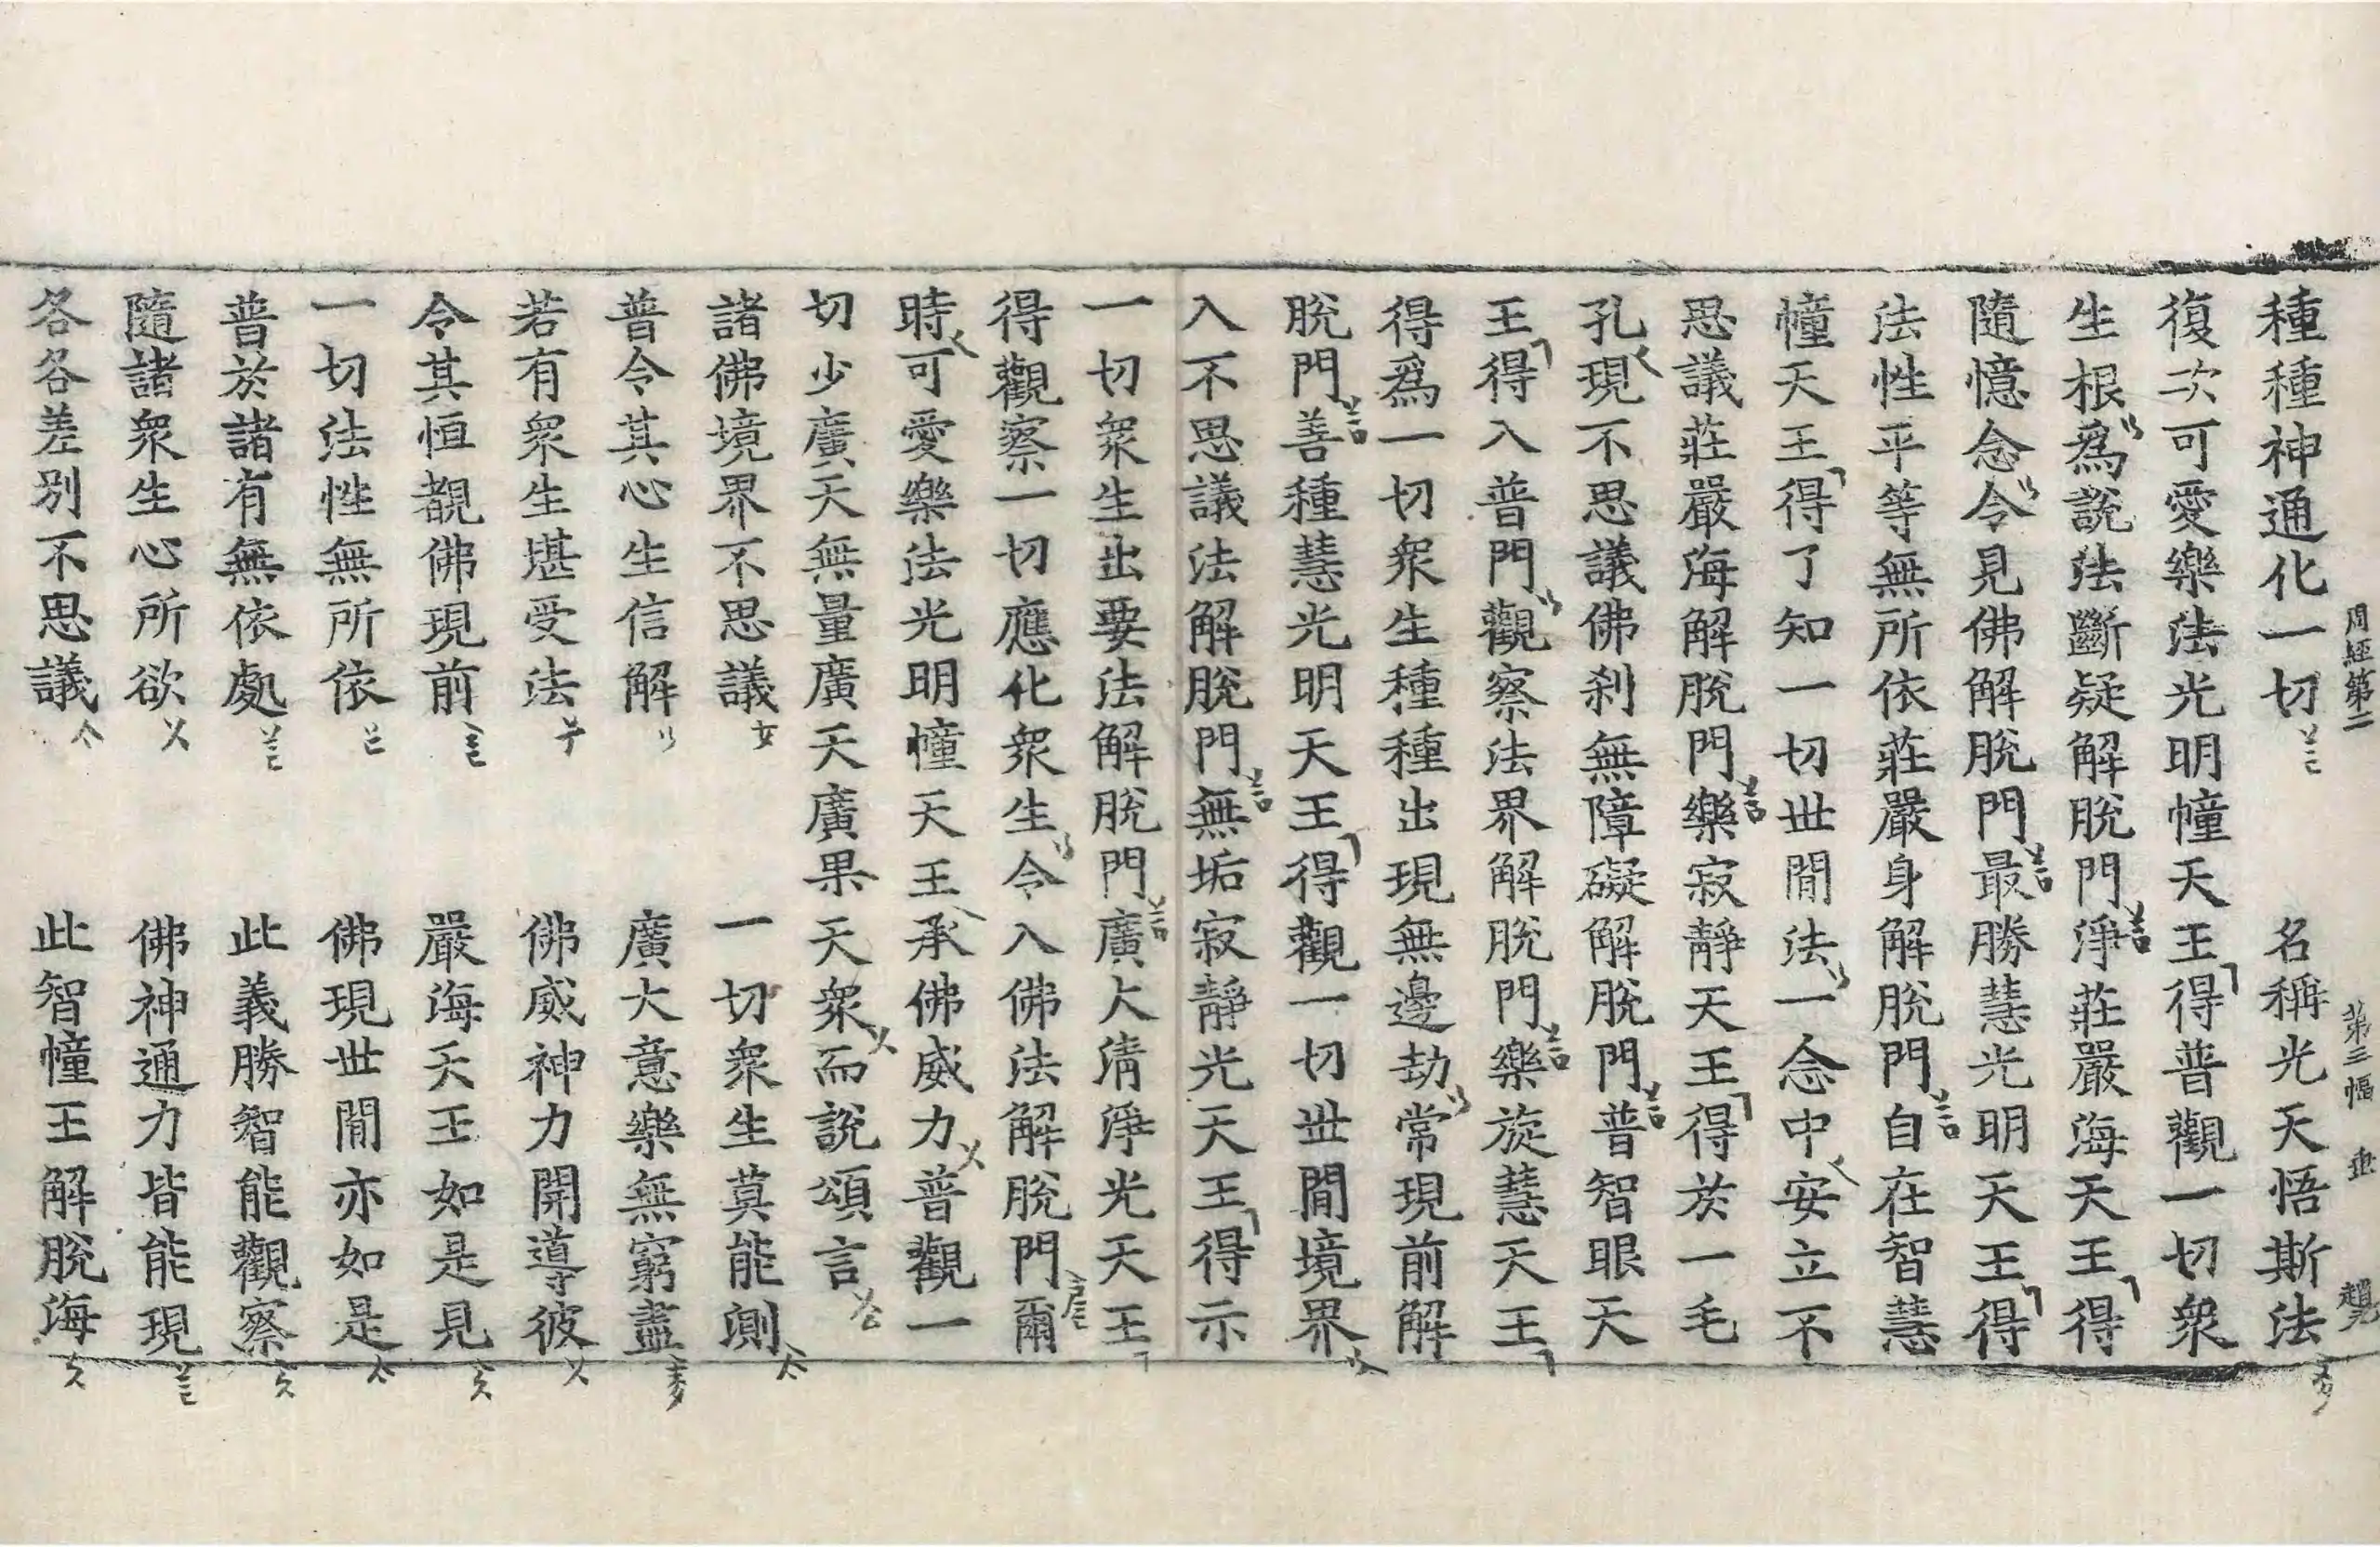 周經第二 第三幅
種種神通化一切 名稱光天悟斯法
復次可愛樂法光明幢天王得普觀一切衆
生根爲說法斷疑解脫門淨莊嚴海天王得
隨憶念令見佛解脫門最勝慧光明天王得
法性平等無所依莊嚴身解脫門自在智慧
幢天王得了知一切世間法一念中安立不
思議莊嚴海解脫門樂寂靜天王得於一毛
孔現不思議佛刹無障礙解脫門普智眼天
王得入普門觀察法界解脫門樂旋慧天王
得爲一切衆生種種出現無邊劫常現前解
脫門善種慧光明天王得觀一切世間境界
入不思議法解脫門無垢寂靜光天王得示
一切衆生出要法解脫門廣大淸淨光天王
得觀察一切應化衆生令入佛法解脫門爾
時可愛樂法光明幢天王承佛威力普觀一
切少廣天無量廣天廣果天衆而說頌言
諸佛境界不思議 一切衆生莫能測
普令其心生信解 廣大意樂無窮盡
若有衆生堪受法 佛威神力開導彼
令其恒覩佛現前 嚴海天王如是見
一切法性無所依 佛現世間亦如是
普於諸有無依處 此義勝智能觀察
隨諸衆生心所欲 佛神通力皆能現
各各差別不思議 此智幢王解脫海